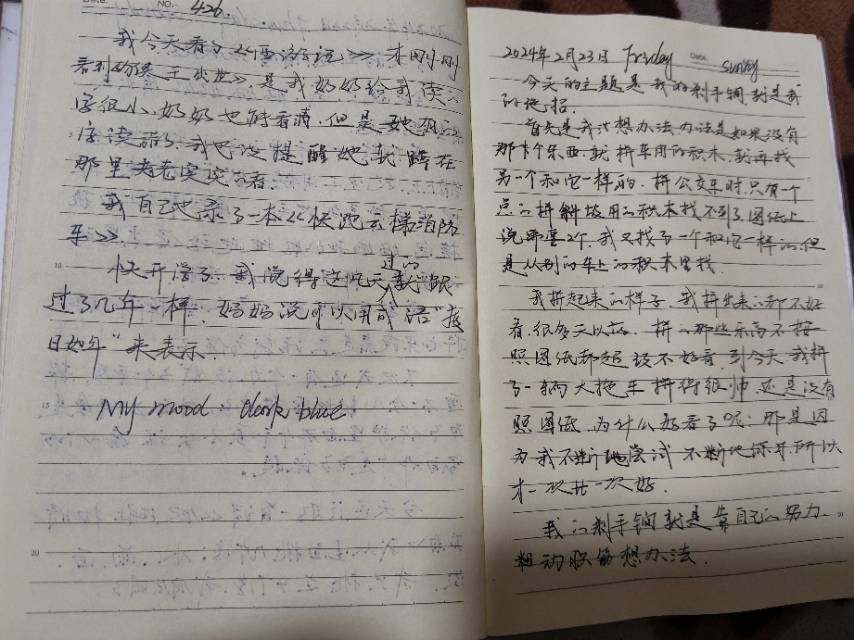 Date. NO. 426.
我今天看了《西游记》才刚刚
看到猕猴王出世》是我奶奶给我读
字很小.奶奶也能看清.但是她有
字读错了.我也没提醒她就蹲在
那里老老实实听着
我自己也录了一本《快跑云梯消防
车》.
快开学了.我觉得这几天过的就跟
过了几年一样.妈妈说可以用成语"度
日如年"来表示.
My mood: dark blue
2024年2月23日 Friday Date. sunny
今天的主题是我的刹手锏就是我
的绝招.
首先是我想办法办法是如果没有
那个东西.就拼车用的积木.我再找
另一个和它一样的.拼公交车时.只有一个
点的拼斜坡用的积木找不到了.图纸上
说那要2个.我又找了一个和它一样的.但
是从别的车上的积木里找.
我拼起来的样子.我拼出来的都不好
看.很多天以前.拼的那些东西不按
照图纸都超级不好看.到今天我拼
了一辆大拖车拼得很帅.还是没有
照图纸.为什么好看了呢:那是因
为我不断地尝试不断地 所以
才一次比一次好.
我的刹手锏就是靠自己的努力
想办法.